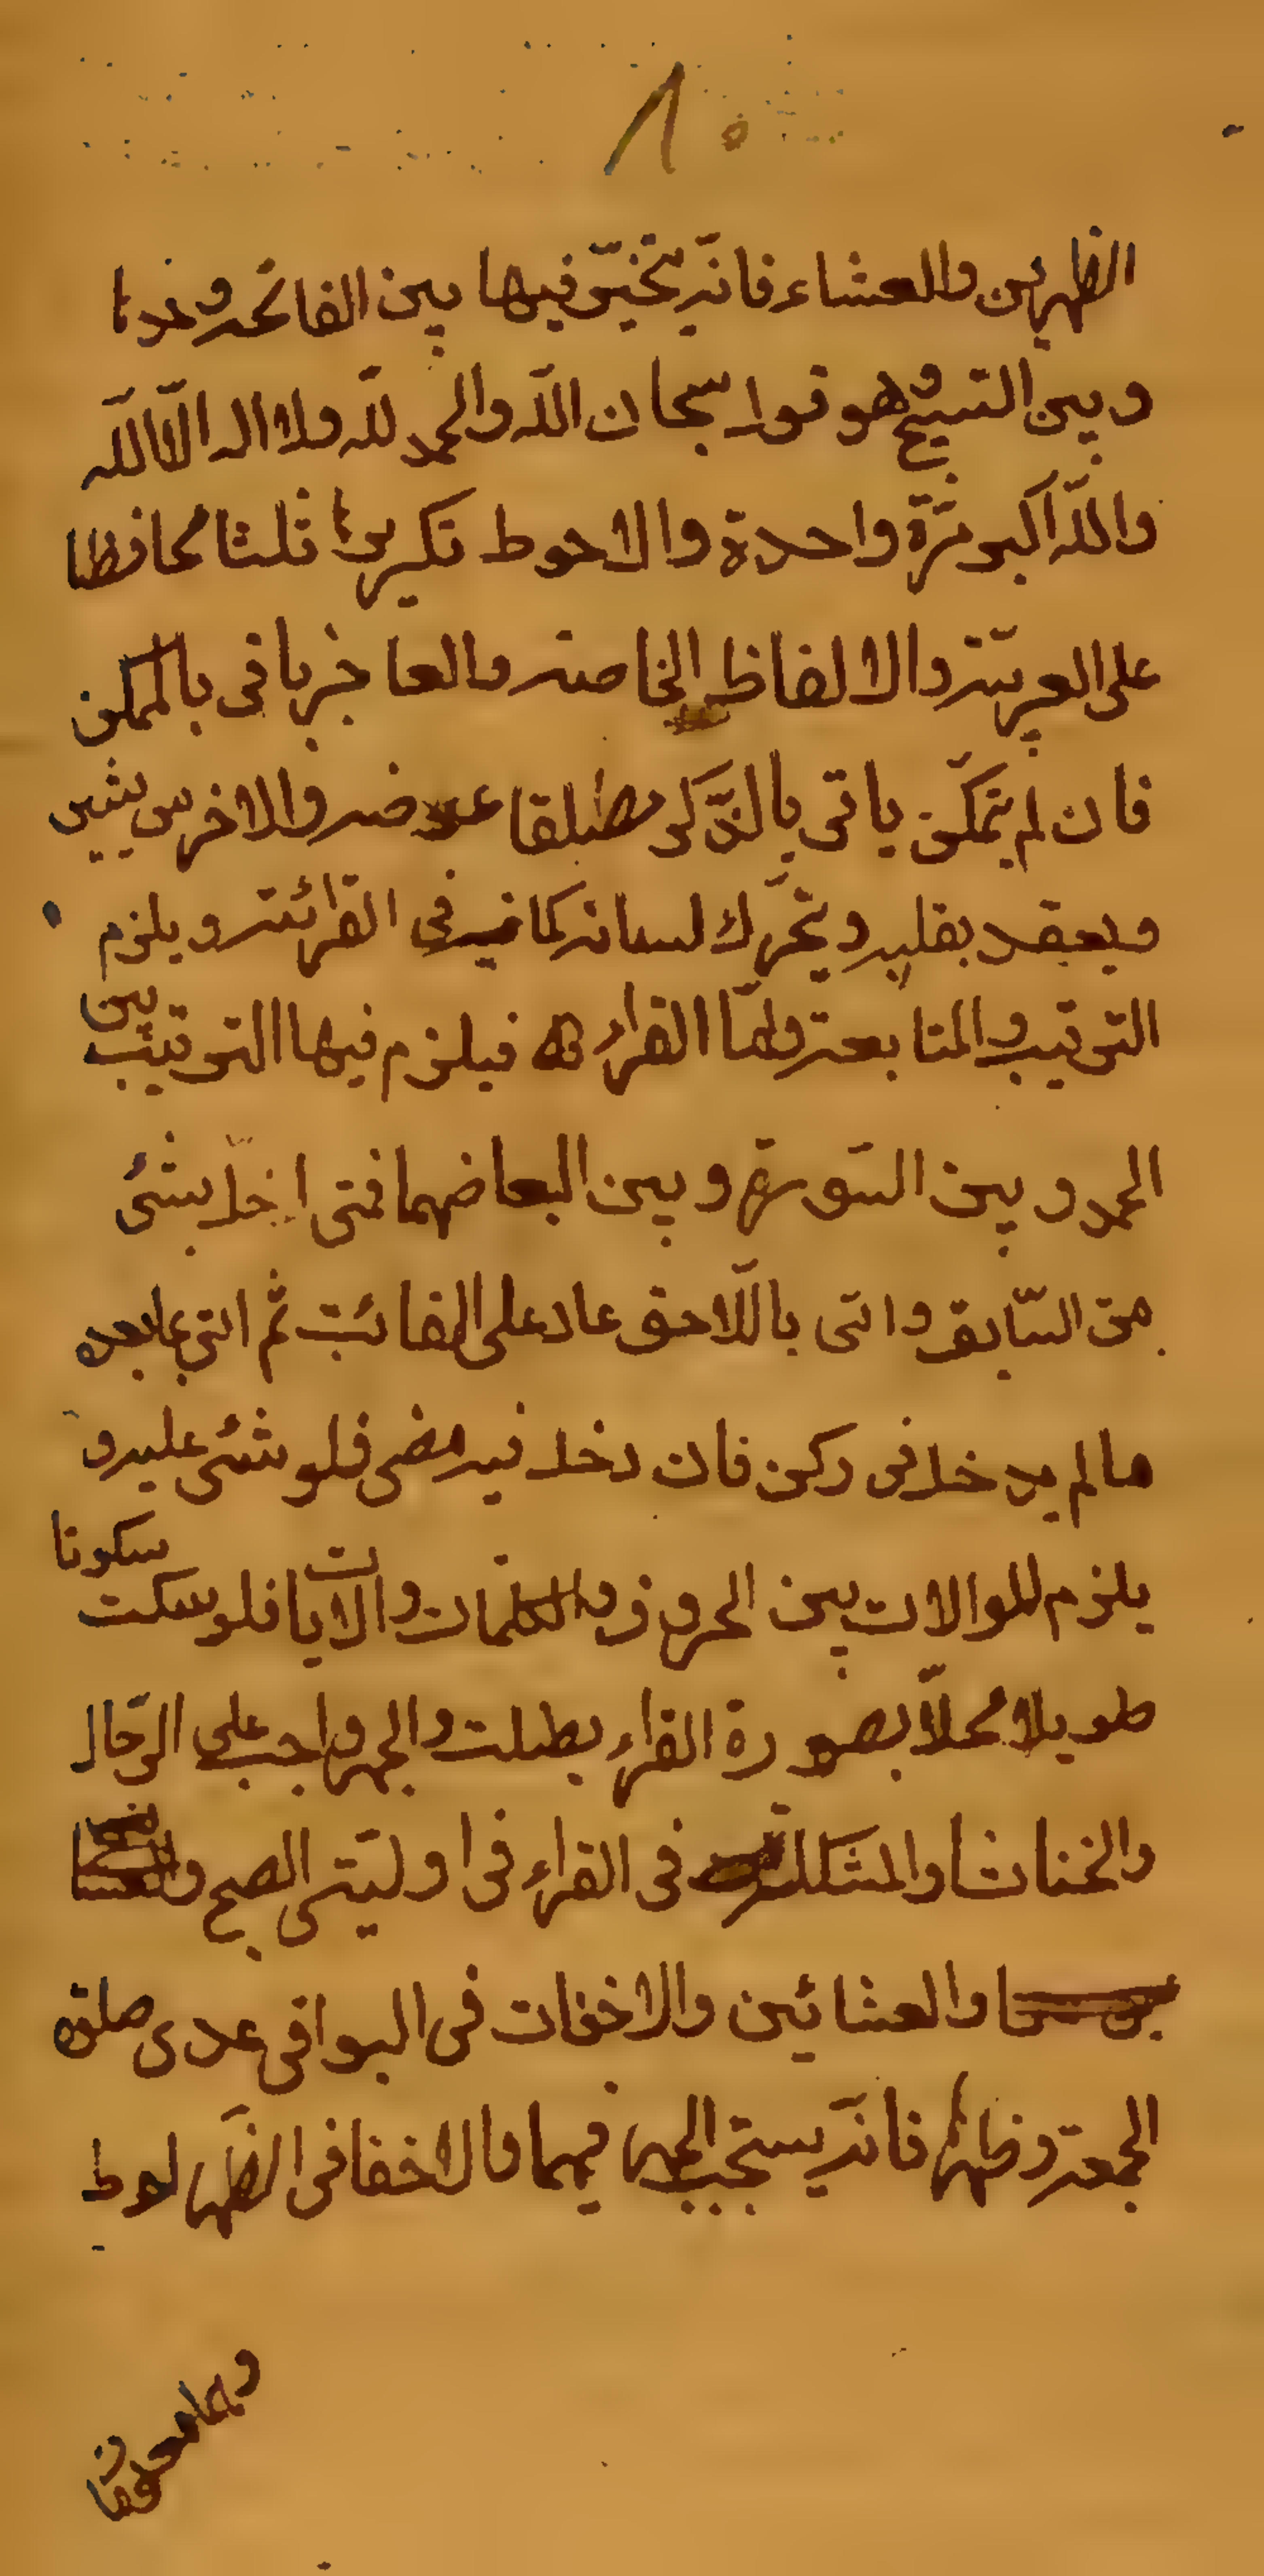 ٨٥
الظهرين والعشاء فانه يتخير فيها بين الفاتحه وحدها
وبين التسبيح وهو قول سبحان الله والحمد لله ولا اله الا الله
والله اكبر مرّة واحدة والاحوط تكريرها ثلثا محافظا
على العربيّة والالفاظ الخاصه والعاجز ياتى بالممكن
فان لم يتمكّن ياتى بالذّكر مطلقا عوضه والاخرس يشير
ويعقد بقلبه ويحرّك لسانه كما فى القرائة ويلزم
الترتيب والمتابعة وامّا القراءة فيلزم فيها الترتيب بين
الحمد وبين السّورة وبين ابعاضهما فمتى اخلّ بشئ
من السّابق واتى باللّاحق عاد على الفائت ثم اتى بما بعده
مالم يدخل فى ركن فان دخل فيه مضى فلا شئ عليه و
يلزم الموالات بين الحروف والكلمات والايات فلو سكت سكوتا
طويلا مخلّا بصورة القراء بطلت والجهر واجب على الرّجال
والخناثا والمشكلة فى القراء فى اوليتى الصبح
والعشائين والاخفات فى البواقى عدى صلوة
الجمعة وظهرها فانه يستحب الجهر فيهما والاخفا فى الظهر احوط